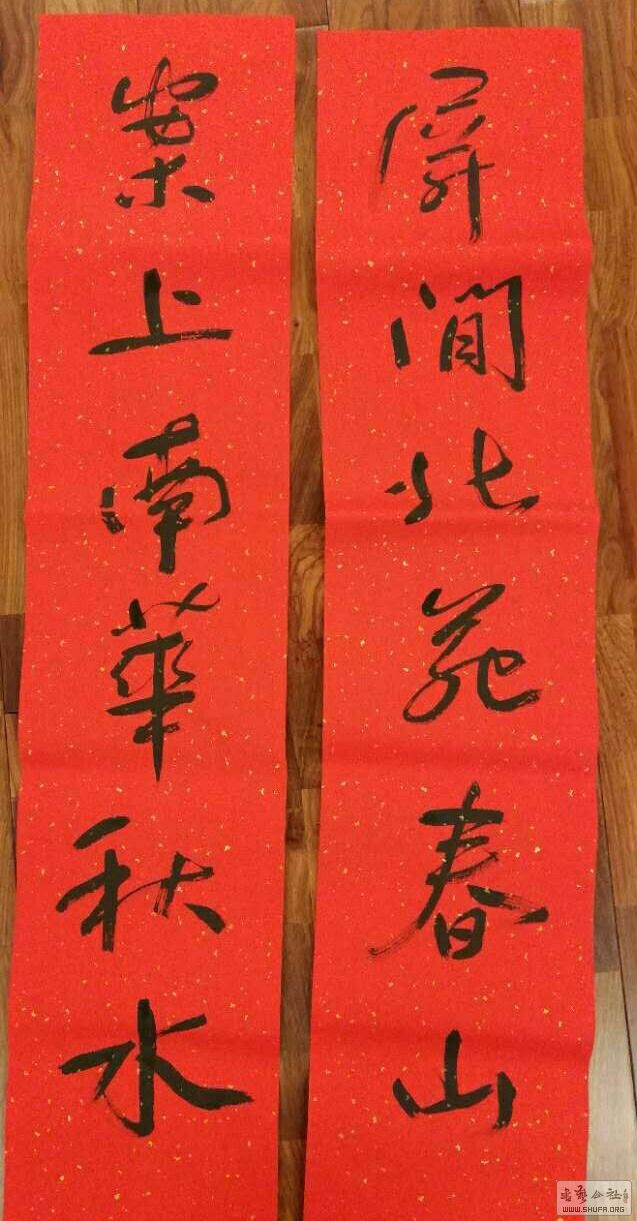 屏間北苑春山
案上南華秋水
書藝公社
WWW.SHUFA.ORG